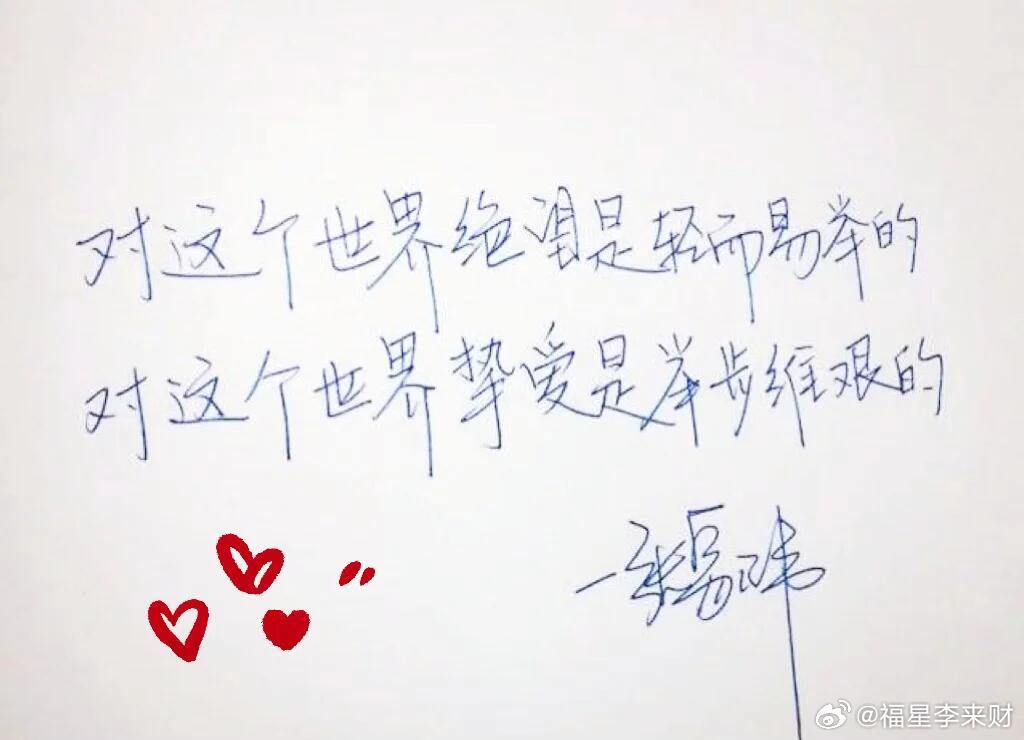 对这个世界绝望是轻而易举的
对这个世界挚爱是举步维艰的
@福星李来财